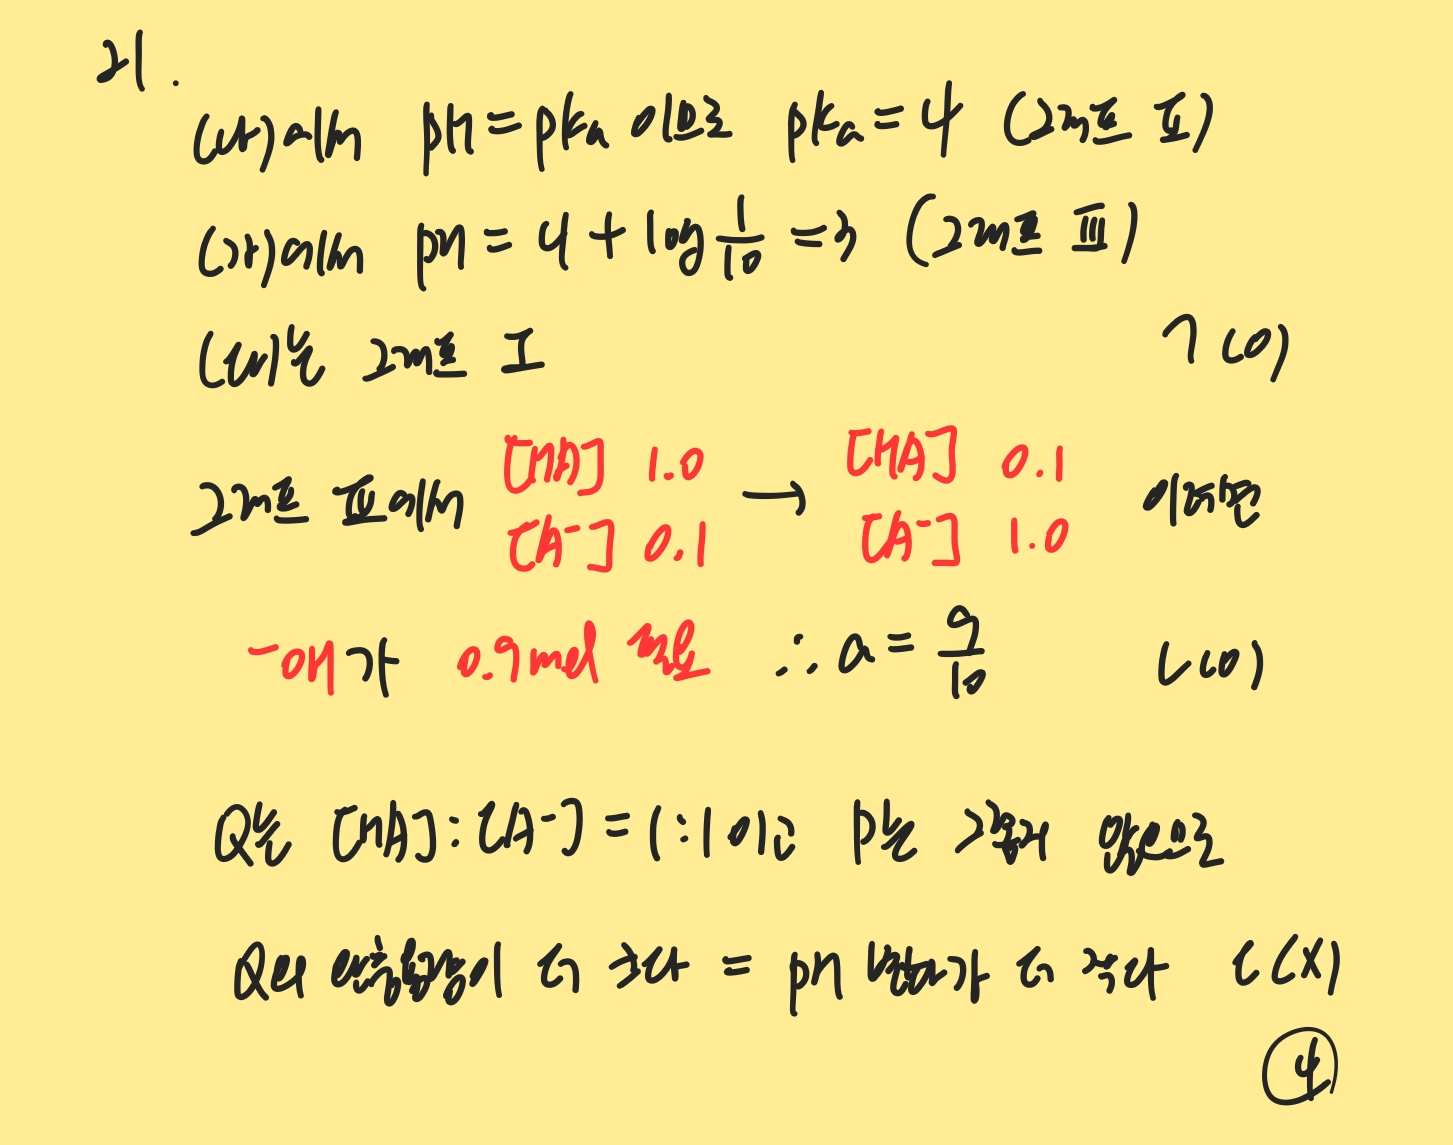 21.
(나)에서 pH = pKa 이므로 pKa = 4 (그래프 Ⅱ)
(가)에서 pH = 4 + log 1/10 = 3 (그래프 Ⅲ)
(다)는 그래프 Ⅰ ㄱ (O)
그래프 Ⅲ에서 [HA] 1.0 → [HA] 0.1 이려면
[A⁻] 0.1 [A⁻] 1.0
⁻OH가 0.9mol 필요 ∴ a = 9/10 ㄴ (O)
Q는 [HA] : [A⁻] = 1 : 1 이고 P는 그렇지 않으므로
Q의 완충용량이 더 크다 = pH 변화가 더 작다 ㄷ (X)
④